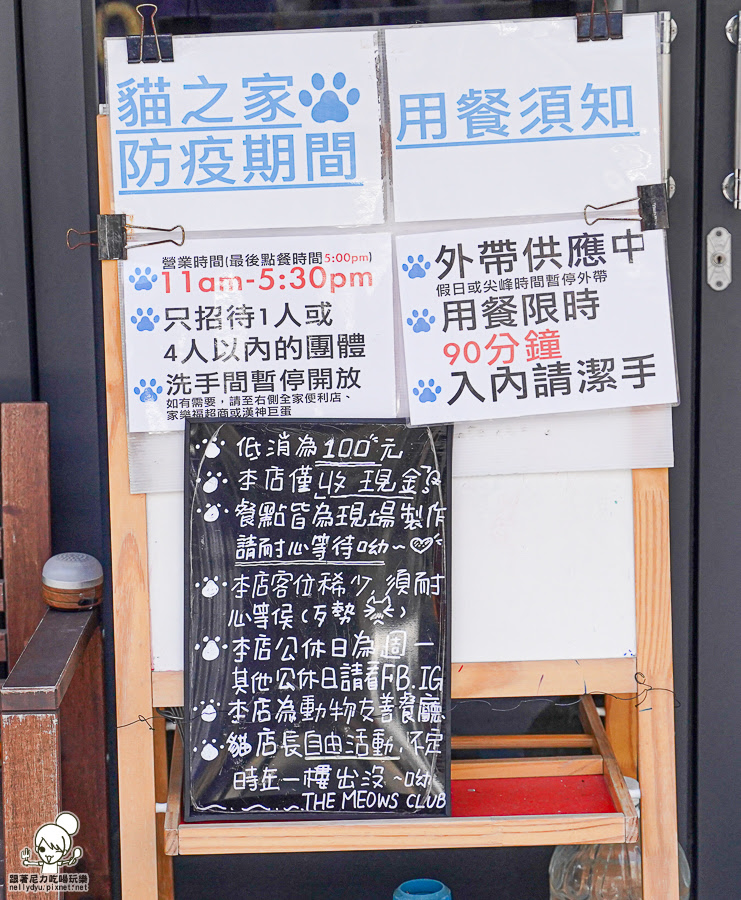 貓之家
防疫期間
用餐須知
營業時間(最後點餐時間5:00pm)
11am-5:30pm
只招待1人或
4人以內的團體
洗手間暫停開放
如有需要，請至右側全家便利店、
家樂福超商或漢神巨蛋
外帶供應中
假日或尖峰時間暫停外帶
用餐限時
90分鐘
入內請潔手
低消為100元
本店僅收現金
餐點皆為現場製作
請耐心等待呦~
本店客位稀少,須耐
心等候(歹勢)
本店公休日為週一
其他公休日請看FB.IG
本店為動物友善餐廳
貓店長自由活動,不定
時在一樓出沒~呦
THE MEOWS CLUB
跟著尼力吃喝玩樂
nellydyu.pixnet.net